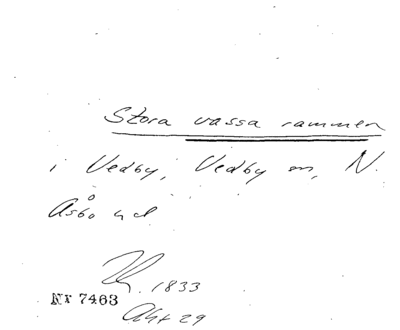 Stora vassa rammen
i Vedby, Vedby sn, N.
Åsbo hd
1833
Nr 7463
Akt 29